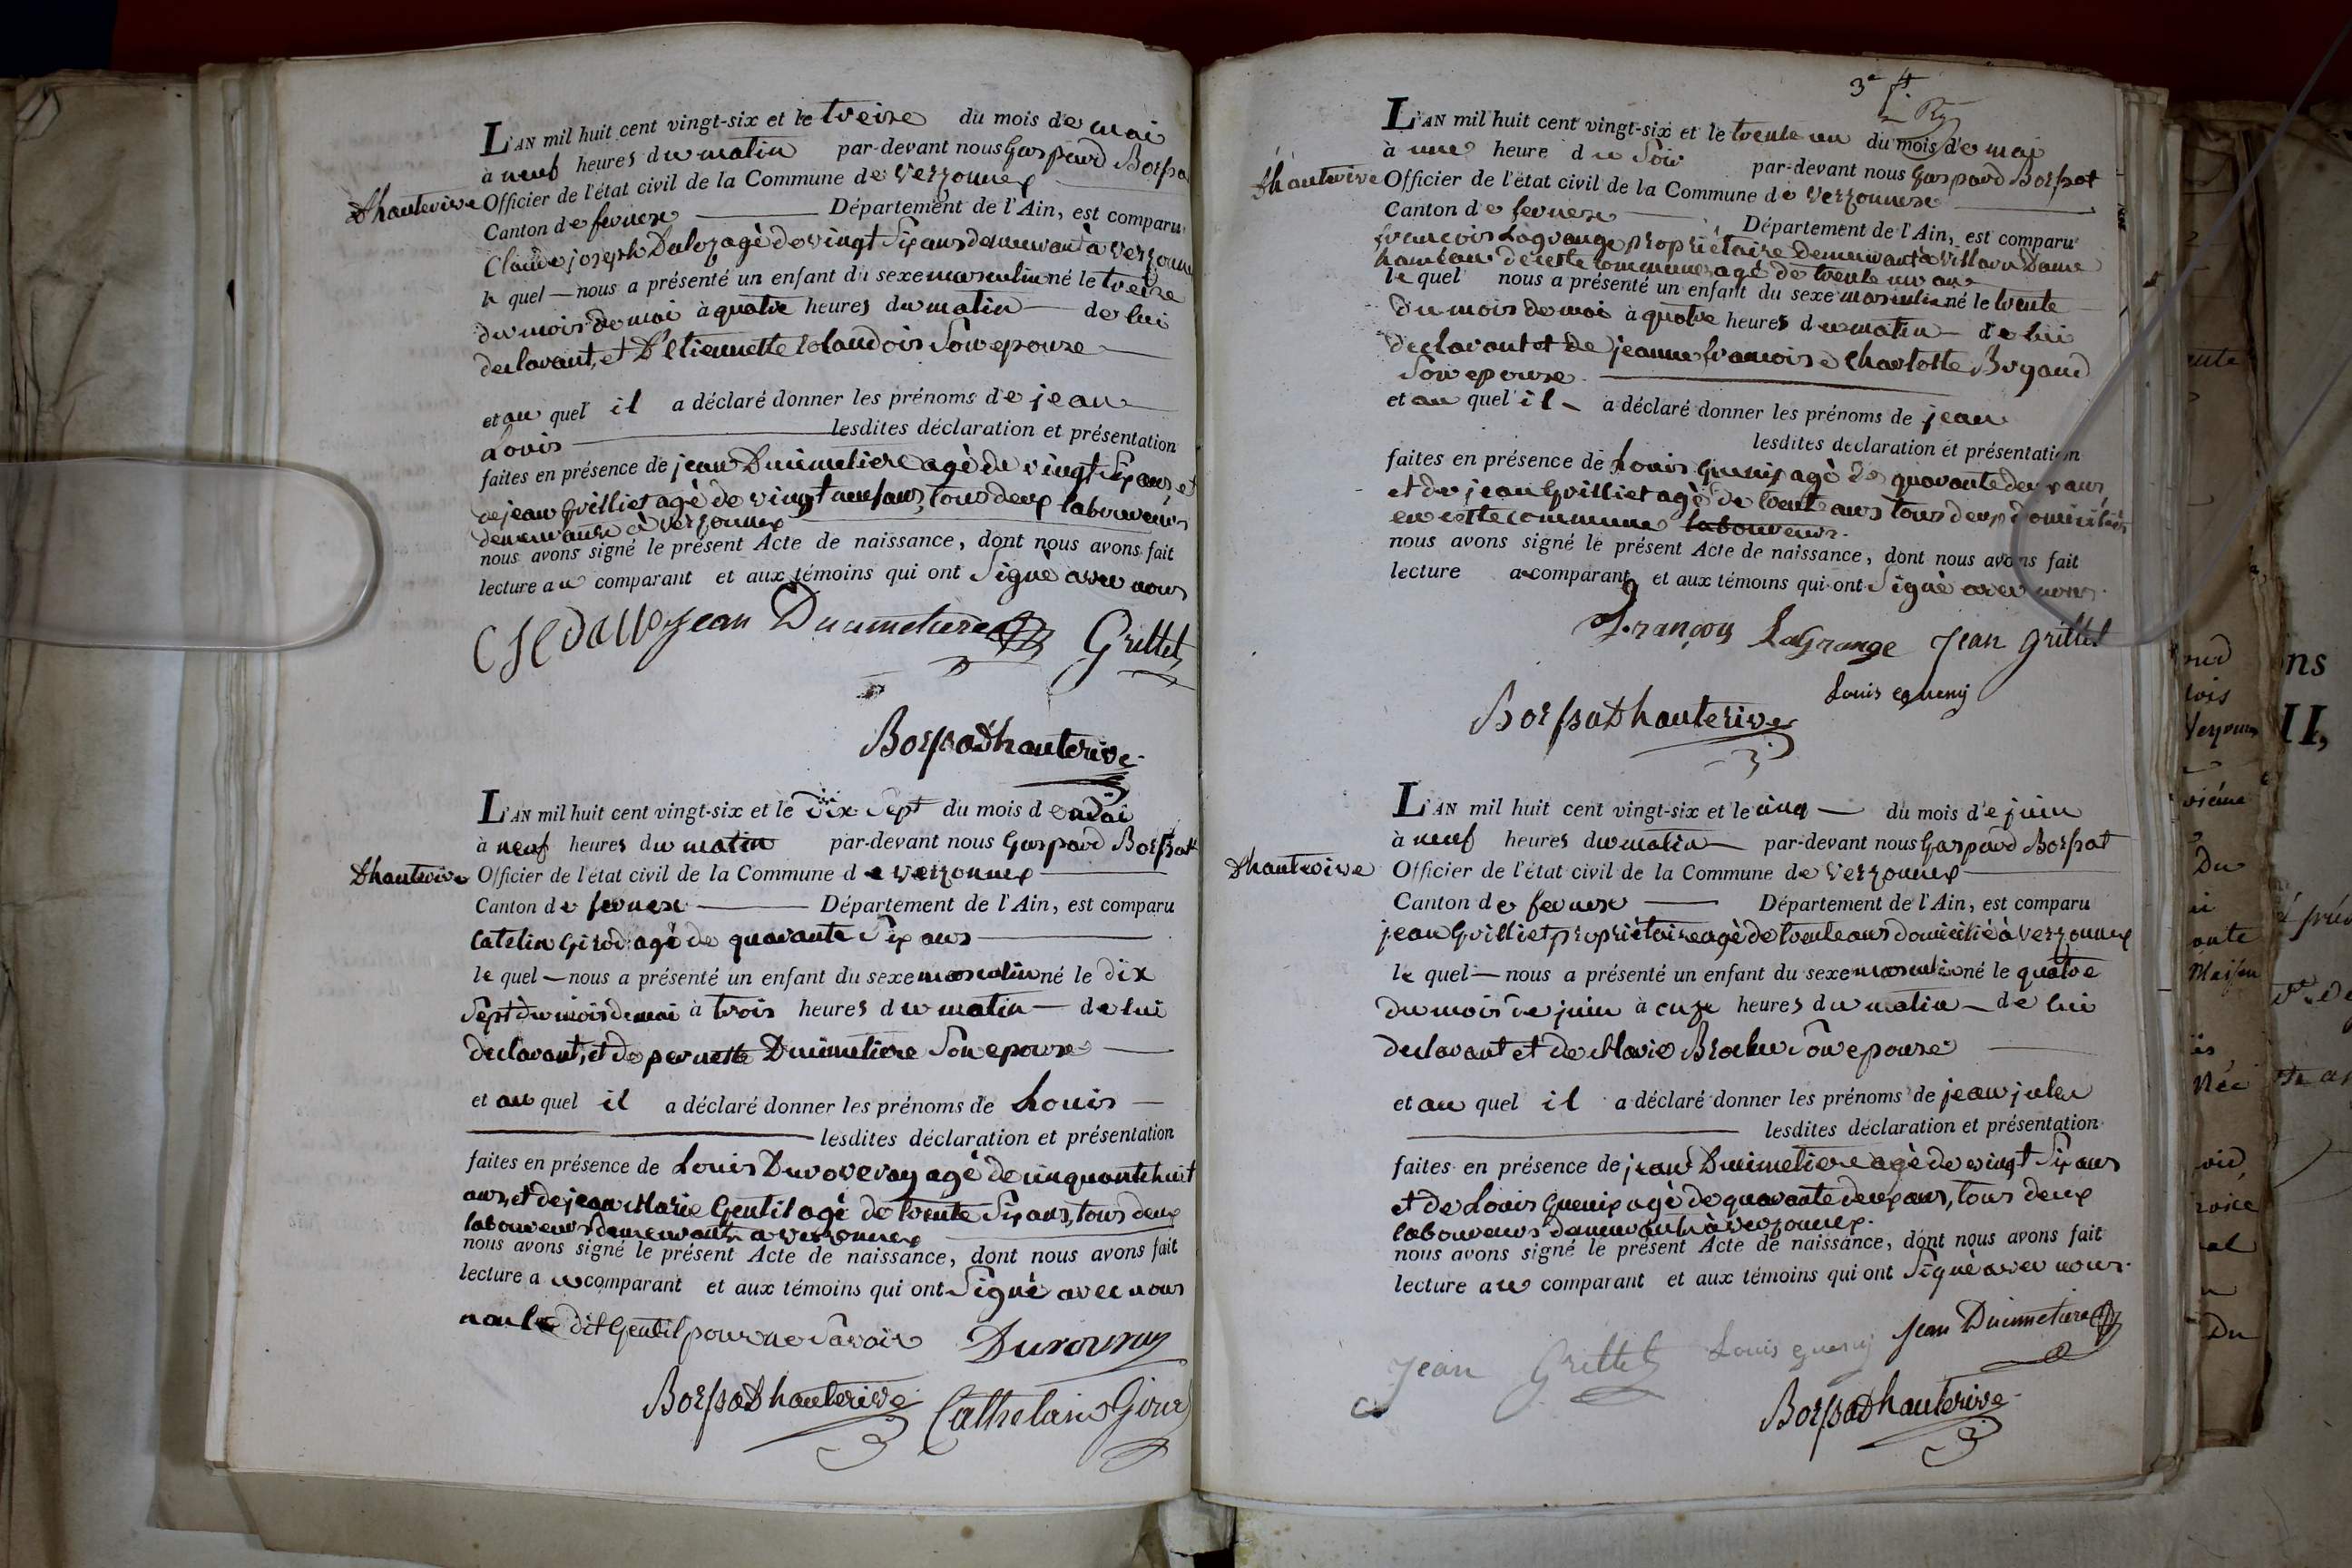 L'AN mil huit cent vingt-six et le treize du mois de mai
à neuf heures du matin par-devant nous Gaspard Borssa
Dhauterive Officier de l'état civil de la Commune de Verzonnex
Canton de fernex Département de l'Ain, est comparu
Claude joseph Daloz agé de vingt six ans demeurant à Verzonne
le quel nous a présenté un enfant du sexe masculin né le treize
du mois de mai à quatre heures du matin de lui
declarant, et D'etiennette Solaudois Son epouze
et au quel il a déclaré donner les prénoms de jean
Louis lesdites déclaration et présentation
faites en présence de jean Duimetiere agé de vingt Six ans, et
de jean Grilliet agé de vingt neuf ans, tous deux laboureurs
demeurants à Verzonnex
nous avons signé le présent Acte de naissance, dont nous avons fait
lecture au comparant et aux témoins qui ont Signé avec nous
Jean Duimetiere Grillet
BorssaDhauterive
L'AN mil huit cent vingt-six et le dix Sept du mois de mai
à neuf heures du matin par-devant nous Gaspard Borssat
Dhauterive Officier de l'état civil de la Commune de Verzonnex
Canton de fernex Département de l'Ain, est comparu
Catelin Girod agé de quarante Six ans
le quel nous a présenté un enfant du sexe masculin né le dix
Sept du mois de mai à trois heures du matin de lui
declarant, et de pernette Duimetiere Son epouze
et au quel il a déclaré donner les prénoms de Louis
lesdites déclaration et présentation
faites en présence de Louis Duroveray agé de cinquante huit
ans, et de jean Marie Gentil agé de trente Six ans, tous deux
laboureurs demeurants a verzonnex
nous avons signé le présent Acte de naissance, dont nous avons fait
lecture au comparant et aux témoins qui ont Signé avec nous
non le dit Gentil pour ne Savoir Duroveray
BorssaDhauterive Cathelain Girod
3e
L'AN mil huit cent vingt-six et le trente un du mois de mai
à une heure du Soir par-devant nous Gaspard Borssat
Dhauterive Officier de l'état civil de la Commune de Verzonnex
Canton de fernex Département de l'Ain, est comparu
francois Lagrange propriétaire Demeurant à Villard Dame
hameau de cette commune, agé de trente un ans
le quel nous a présenté un enfant du sexe masculin né le trente
du mois de mai à quatre heures du matin de lui
declarant et de jeanne francoise Charlotte Bugand
Son epouze
et au quel il a déclaré donner les prénoms de jean
lesdites déclaration et présentation
faites en présence de Louis Guenix agé de quarante deux ans
et de jean Grilliet agé de trente ans tous deux domiciliés
en cette commune laboureurs.
nous avons signé le présent Acte de naissance, dont nous avons fait
lecture a comparant et aux témoins qui ont Signé avec nous.
François LaGrange Jean Grillet
BorssaDhauterive Louis guenij
L'AN mil huit cent vingt-six et le cinq du mois de juin
à neuf heures du matin par-devant nous Gaspard Borssat
Dhauterive Officier de l'état civil de la Commune de Verzonnex
Canton de fernex Département de l'Ain, est comparu
jean Grilliet propriétaire agé de trente ans domicilié à verzonnex
le quel nous a présenté un enfant du sexe masculin né le quatre
du mois de juin à onze heures du matin de lui
declarant et de Marie Brochu Son epouze
et au quel il a déclaré donner les prénoms de jean jules
lesdites déclaration et présentation
faites en présence de jean Duimetiere agé de vingt Six ans
et de Louis Guenix agé de quarante deux ans, tous deux
laboureurs demeurants à verzonnex.
nous avons signé le présent Acte de naissance, dont nous avons fait
lecture au comparant et aux témoins qui ont Signé avec nous.
Jean Grillet Louis guenij Jean Duimetiere
BorssaDhauterive